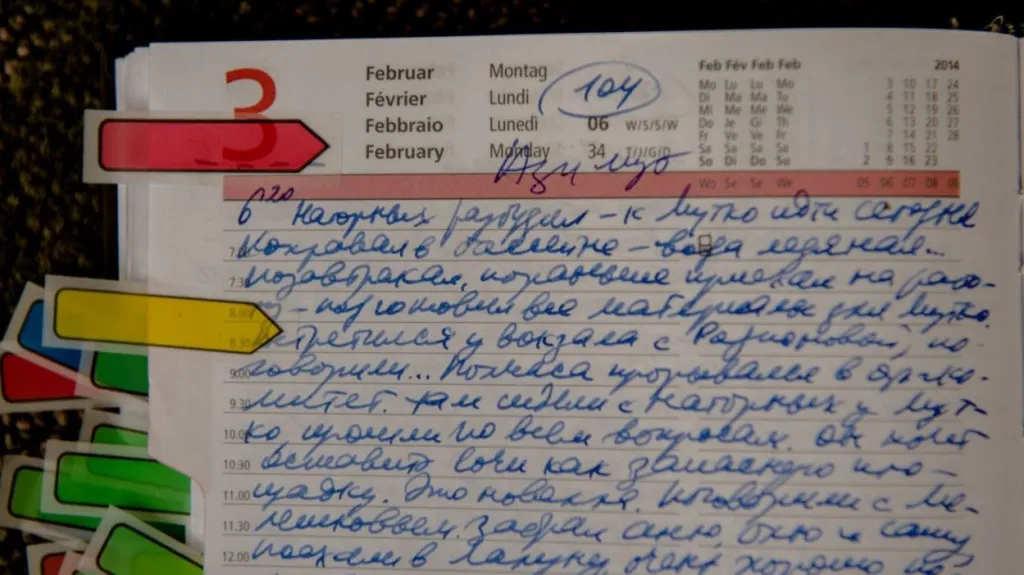 3 Februar Montag 104 Feb Fév Feb Feb 2014
Février Lundi Mo Lu Lu Mo 3 10 17 24
Di Ma Ma Tu 4 11 18 25
Febbraio Lunedì 06 W/S/S/W Mi Me Me We 5 12 19 26
Do Je Gi Th 6 13 20 27
February Monday 34 T/J/G/D Fr Ve Ve Fr 7 14 21 28
Sa Sa Sa Sa 1 8 15 22
So Di Do Su 2 9 16 23
Wo Se Se We 05 06 07 08 09
6 20 Нагорных разбудил – к Мутко идти сегодня
7.00 в бассейне – вода ледяная...
7.30 позавтракал, пораньше приехал на рабо-
8.00 ту – подготовил все материалы для Мутко.
8.30 встретился у вокзала с Родионовой, по-
9.00 говорили... Полчаса прорывался в оргко-
9.30 митет. Там сидели с Нагорных у Мут-
10.00 ко, прошли по всем вопросам. Он хочет
10.30 оставить Сочи как запасную пло-
11.00 щадку. Это новация. Поговорили с Ме-
11.30 Забрал и Сашу
12.00 поехали в очень хорошо